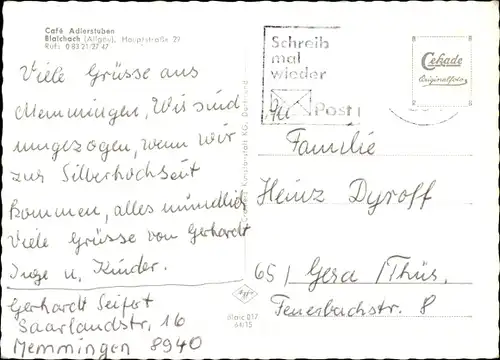 Café Adlerstuben
Blaichach (Allgäu), Hauptstraße 29
Rufs: 0 83 21/27 47
Viele Grüsse aus
Memmingen, Wir sind
umgezogen, wenn wir
zur Silberhochzeit
kommen, alles mündlich
Viele Grüsse von Gerhardt
Inge u. Kinder.
Gerhardt Seifert
Saarlandstr. 16
Memmingen 8940
Kunstanstalt KG, Dortmund
Blaic 017
64/15
Schreib
mal
wieder
Post
Cekade
Originalfoto
An
Familie
Heinz Dyroff
65 / Gera / Thür.
Feuerbachstr. 8